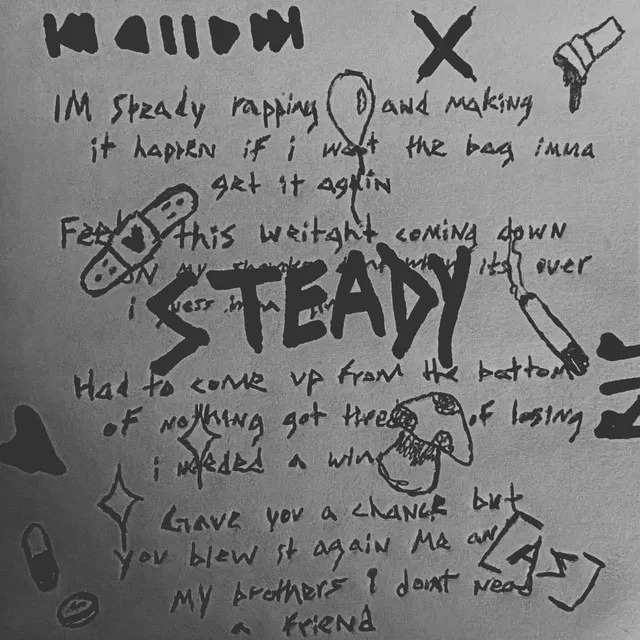 IM Steady rapping and making
it happen if i want the bag imma
get it again
Feel this weitght coming down
ON my its over
i guess
STEADY
Had to come up from the bottom
of nothing got tired of losing
i needed a win
Gave you a chance but
you blew it again Me and
My brothers I dont need
a friend